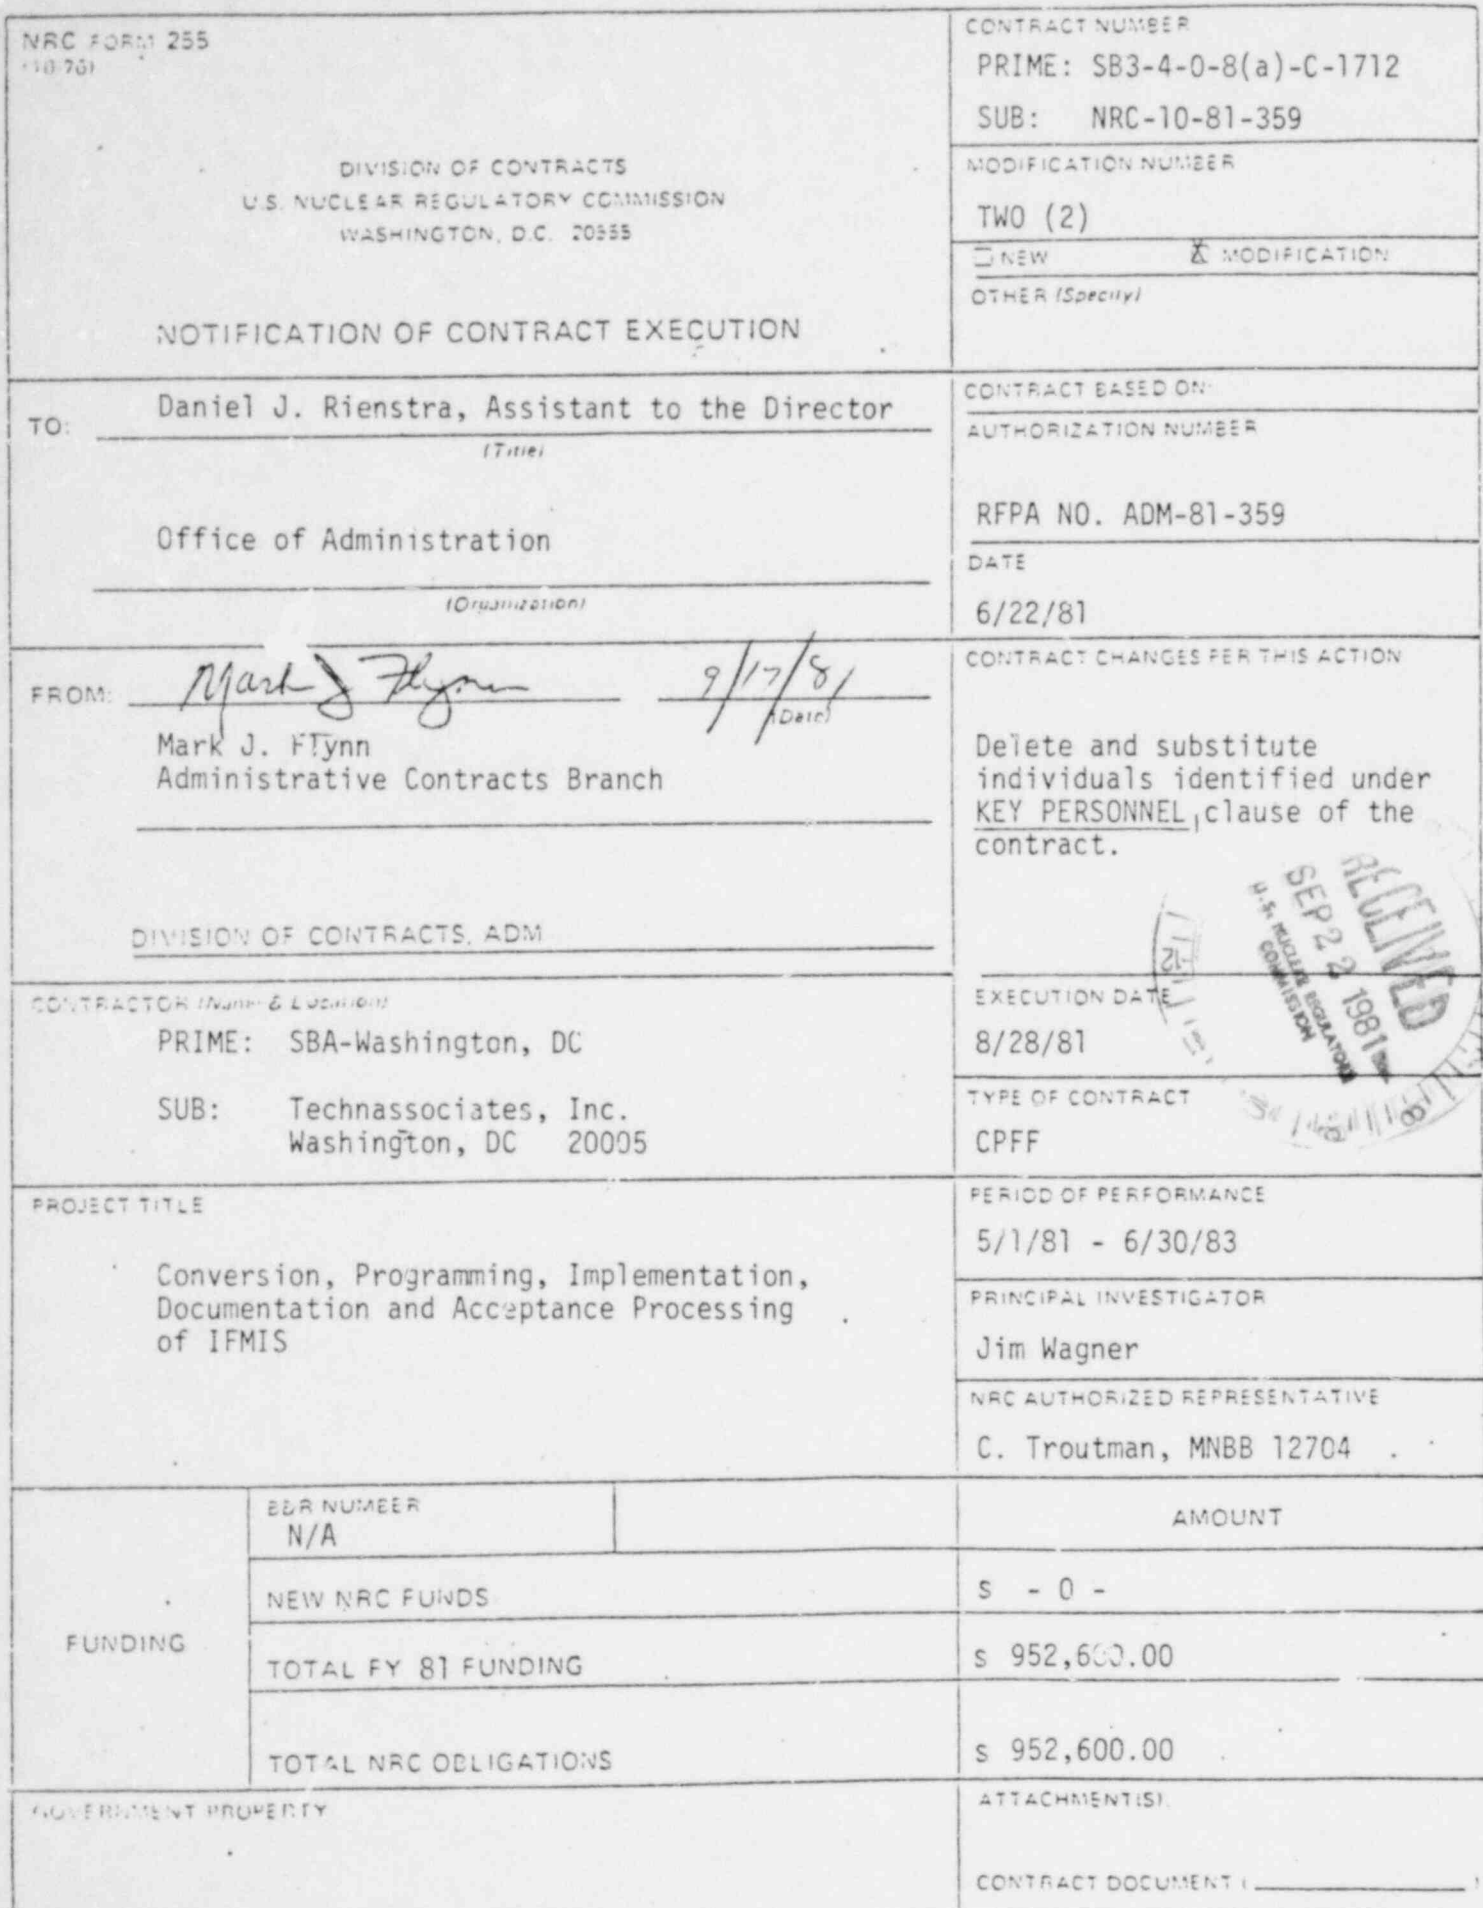 NRC FORM 255
(10-76)
DIVISION OF CONTRACTS
U.S. NUCLEAR REGULATORY COMMISSION
WASHINGTON, D.C. 20555
NOTIFICATION OF CONTRACT EXECUTION
CONTRACT NUMBER
PRIME: SB3-4-0-8(a)-C-1712
SUB: NRC-10-81-359
MODIFICATION NUMBER
TWO (2)
NEW X MODIFICATION
OTHER (Specify)
TO: Daniel J. Rienstra, Assistant to the Director
(Title)
Office of Administration
(Organization)
CONTRACT BASED ON:
AUTHORIZATION NUMBER
RFPA NO. ADM-81-359
DATE
6/22/81
FROM: Mark J Flynn 9/17/81
(Date)
Mark J. Flynn
Administrative Contracts Branch
DIVISION OF CONTRACTS, ADM
CONTRACT CHANGES PER THIS ACTION
Delete and substitute
individuals identified under
KEY PERSONNEL, clause of the
contract.
RECEIVED
SEP 22 1981
U.S. NUCLEAR REGULATORY
COMMISSION
CONTRACTOR (Name & Location)
PRIME: SBA-Washington, DC
SUB: Technassociates, Inc.
Washington, DC 20005
EXECUTION DATE
8/28/81
TYPE OF CONTRACT
CPFF
PROJECT TITLE
Conversion, Programming, Implementation,
Documentation and Acceptance Processing
of IFMIS
PERIOD OF PERFORMANCE
5/1/81 - 6/30/83
PRINCIPAL INVESTIGATOR
Jim Wagner
NRC AUTHORIZED REPRESENTATIVE
C. Troutman, MNBB 12704
FUNDING
B&R NUMBER
N/A
AMOUNT
NEW NRC FUNDS $ - 0 -
TOTAL FY 81 FUNDING $ 952,600.00
TOTAL NRC OBLIGATIONS $ 952,600.00
GOVERNMENT PROPERTY
ATTACHMENT(S):
CONTRACT DOCUMENT ( )